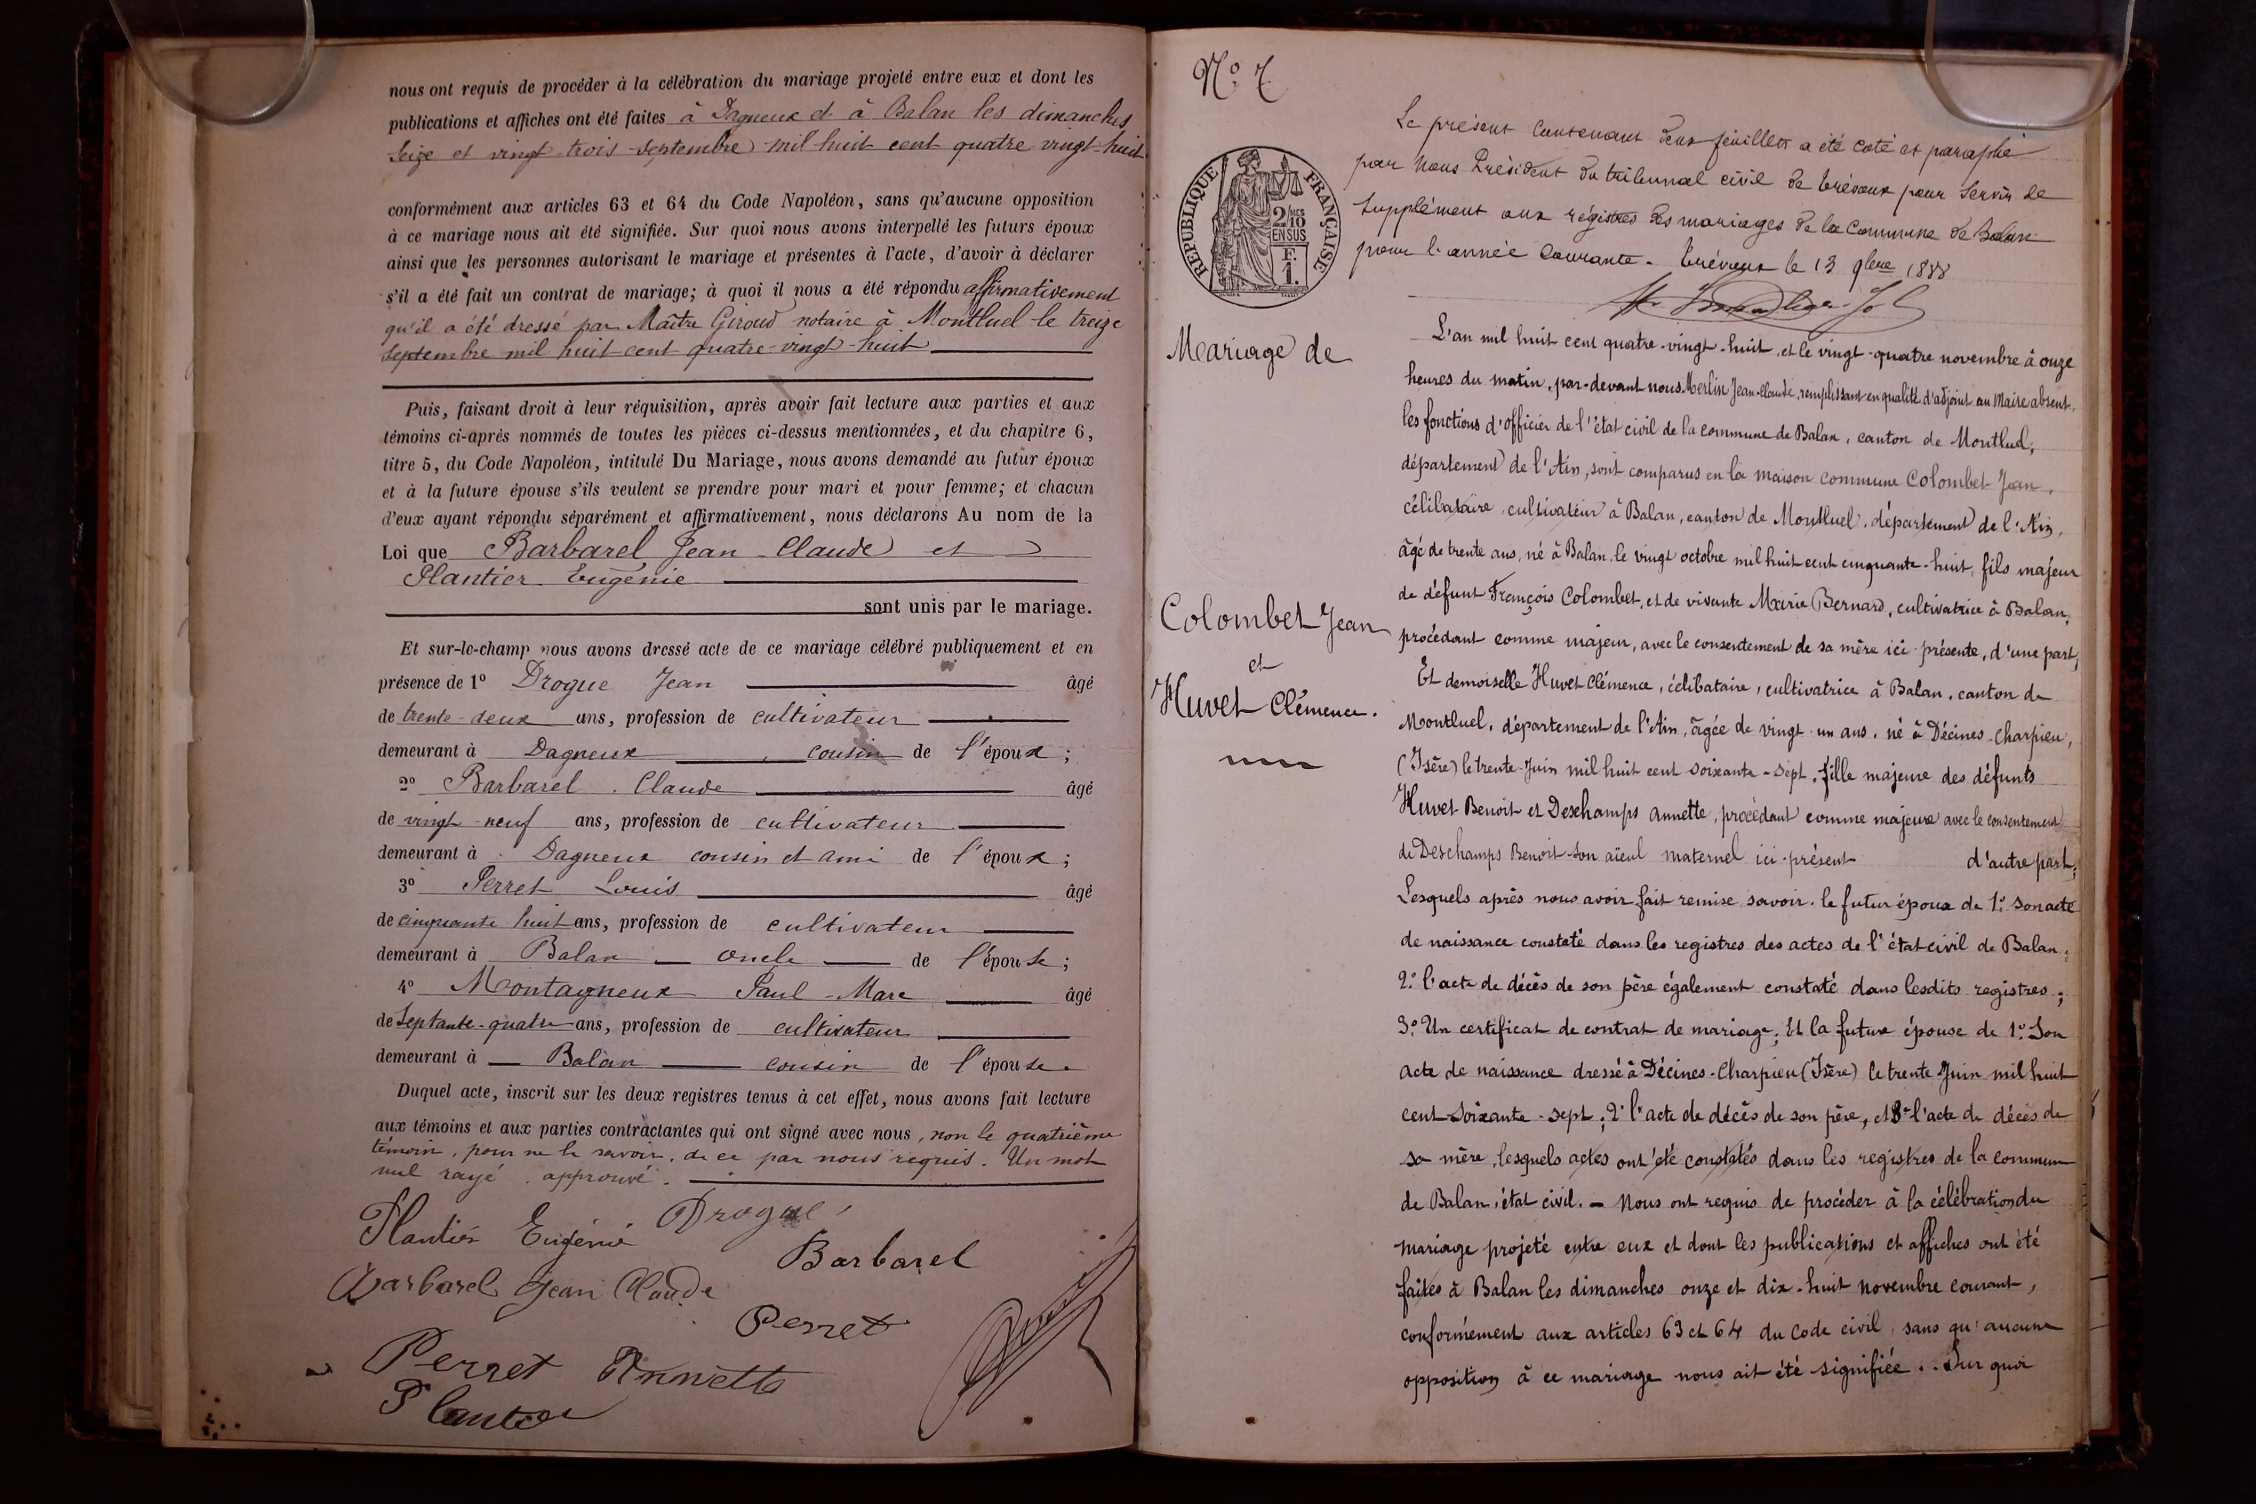 nous ont requis de procéder à la célébration du mariage projeté entre eux et dont les
publications et affiches ont été faites à Dagneux et à Balan les dimanches
seize et vingt trois septembre mil huit cent quatre vingt-huit
conformément aux articles 63 et 64 du Code Napoléon, sans qu'aucune opposition
à ce mariage nous ait été signifiée. Sur quoi nous avons interpellé les futurs époux
ainsi que les personnes autorisant le mariage et présentes à l'acte, d'avoir à déclarer
s'il a été fait un contrat de mariage; à quoi il nous a été répondu affirmativement
qu'il a été dressé par Maître Giroud notaire à Montluel le treize
septembre mil huit cent quatre-vingt-huit
Puis, faisant droit à leur réquisition, après avoir fait lecture aux parties et aux
témoins ci-après nommés de toutes les pièces ci-dessus mentionnées, et du chapitre 6,
titre 5, du Code Napoléon, intitulé Du Mariage, nous avons demandé au futur époux
et à la future épouse s'ils veulent se prendre pour mari et pour femme; et chacun
d'eux ayant répondu séparément et affirmativement, nous déclarons Au nom de la
Loi que Barbarel Jean-Claude et
Plantier Eugénie
sont unis par le mariage.
Et sur-le-champ nous avons dressé acte de ce mariage célébré publiquement et en
présence de 1º Drogue Jean âgé
de trente-deux ans, profession de cultivateur
demeurant à Dagneux, cousin de l'époux;
2º Barbarel Claude âgé
de vingt-neuf ans, profession de cultivateur
demeurant à Dagneux cousin et ami de l'époux;
3º Perret Louis âgé
de cinquante huit ans, profession de cultivateur
demeurant à Balan oncle de l'épouse;
4º Montagneux Paul-Marc âgé
de septante-quatre ans, profession de cultivateur
demeurant à Balan cousin de l'épouse.
Duquel acte, inscrit sur les deux registres tenus à cet effet, nous avons fait lecture
aux témoins et aux parties contractantes qui ont signé avec nous, non le quatrième
témoin, pour ne le savoir, de ce par nous requis. Un mot
nul rayé approuvé.
Plantier Eugénie Drogue
Barbarel
Barbarel Jean Claude
Perret
Perret Annette
Plantier
Nº 7
Le présent contenant deux feuillets a été coté et paraphé
par Nous Président du tribunal civil de Trévoux pour servir de
supplément aux régistres des mariages de la Commune de Balan
pour l'année courante. Trévoux le 13 9bre 1888
RÉPUBLIQUE FRANÇAISE
2/10 EN SUS
F. 1.
Mariage de
Colombet Jean
et
Huvet Clémence.
L'an mil huit cent quatre-vingt-huit et le vingt-quatre novembre à onze
heures du matin, par-devant nous Merlin Jean-Claude, remplissant en qualité d'adjoint au Maire absent,
les fonctions d'officier de l'état civil de la commune de Balan, canton de Montluel,
département de l'Ain, sont comparus en la maison commune Colombet Jean,
célibataire, cultivateur à Balan, canton de Montluel, département de l'Ain,
âgé de trente ans, né à Balan le vingt octobre mil huit cent cinquante-huit, fils majeur
de défunt François Colombet, et de vivante Marie Bernard, cultivatrice à Balan,
procédant comme majeur, avec le consentement de sa mère ici présente, d'une part,
Et demoiselle Huvet Clémence, célibataire, cultivatrice à Balan, canton de
Montluel, département de l'Ain, âgée de vingt-un ans, né à Décines-Charpieu,
(Isère) le trente Juin mil huit cent soixante-sept, fille majeure des défunts
Huvet Benoit et Deschamps Annette, procédant comme majeure avec le consentement
de Deschamps Benoit son aïeul maternel ici présent d'autre part;
Lesquels après nous avoir fait remise savoir: le futur époux de 1º son acte
de naissance constaté dans les registres des actes de l'état civil de Balan;
2º l'acte de décès de son père également constaté dans lesdits registres;
3º Un certificat de contrat de mariage; Et la future épouse de 1º Son
acte de naissance dressé à Décines-Charpieu (Isère) le trente Juin mil huit
cent soixante-sept; 2º l'acte de décès de son père, et 3º l'acte de décès de
sa mère, lesquels actes ont été constatés dans les registres de la commune
de Balan, état civil. - Nous ont requis de procéder à la célébration du
mariage projeté entre eux et dont les publications et affiches ont été
faites à Balan les dimanches onze et dix-huit novembre courant,
conformément aux articles 63 et 64 du code civil, sans qu'aucune
opposition à ce mariage nous ait été signifiée. Sur quoi